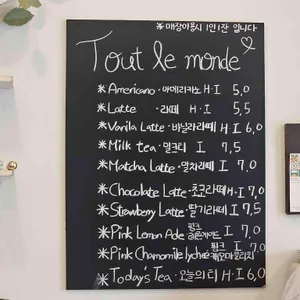 ※매장이용시 1인1잔 입니다
Tout le monde♡
※Americano·아메리카노 H·I 5,0
※Latte ·라떼 H·I 5,5
※Vanila Latte·바닐라라떼 H·I 6,0
※Milk tea·밀크티 I 7,5
※Matcha Latte·말차라떼 I 7,0
※Chocolate Latte·초코라떼 H·I 7,0
※Strawberry Latte·딸기라떼 I 7,5
※Pink Lemon Ade·핑크 레몬에이드 I 7,0
※Pink Chamomile lychee 핑크 캐모마일리치 I 7,0
※Today's Tea·오늘의 티 H·I 6,0